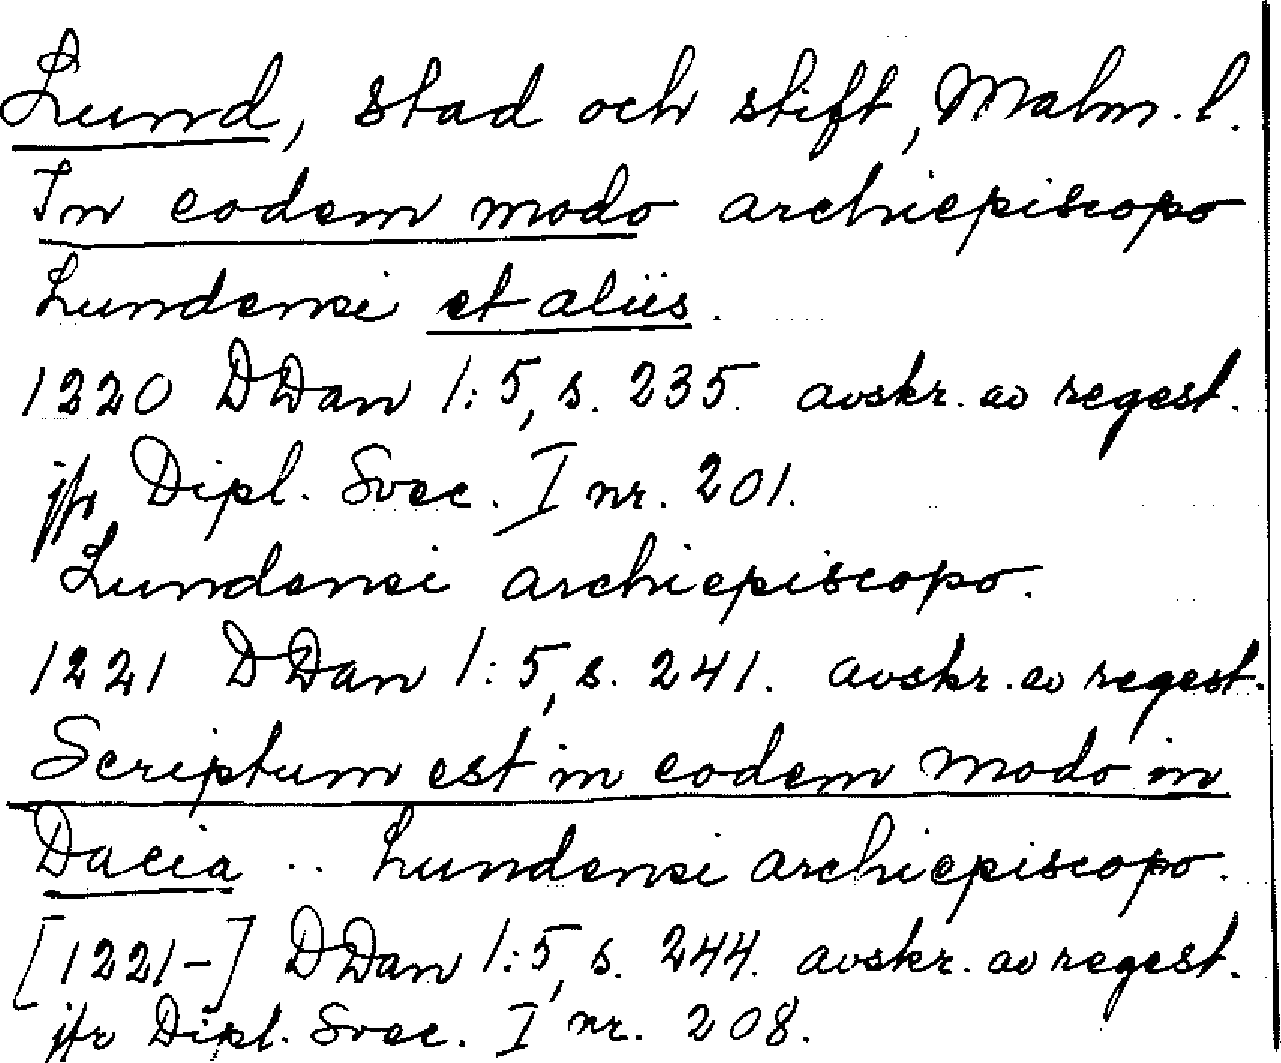 Lund, stad och stift, Malm. l.
In eodem modo archiepiscopo
Lundensi et aliis.
1220 DDan 1:5, s. 235. avskr. av regest.
jfr Dipl. Svec. I nr. 201.
Lundensi archiepiscopo.
1221 DDan 1:5, s. 241. avskr. av regest.
Scriptum est in eodem modo in
Dacia .. Lundensi archiepiscopo.
[1221-] DDan 1:5, s. 244. avskr. av regest.
jfr Dipl. Svec. I nr. 208.